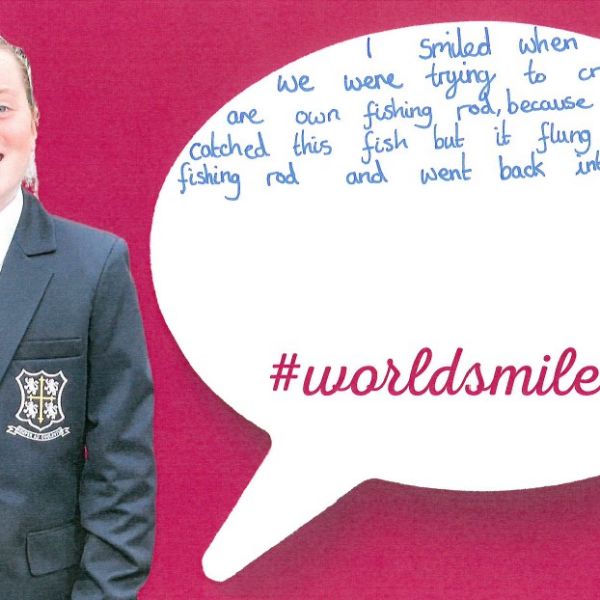 I smiled when
we were trying to cr
are own fishing rod, because
catched this fish but it flung
fishing rod and went back int
#worldsmile